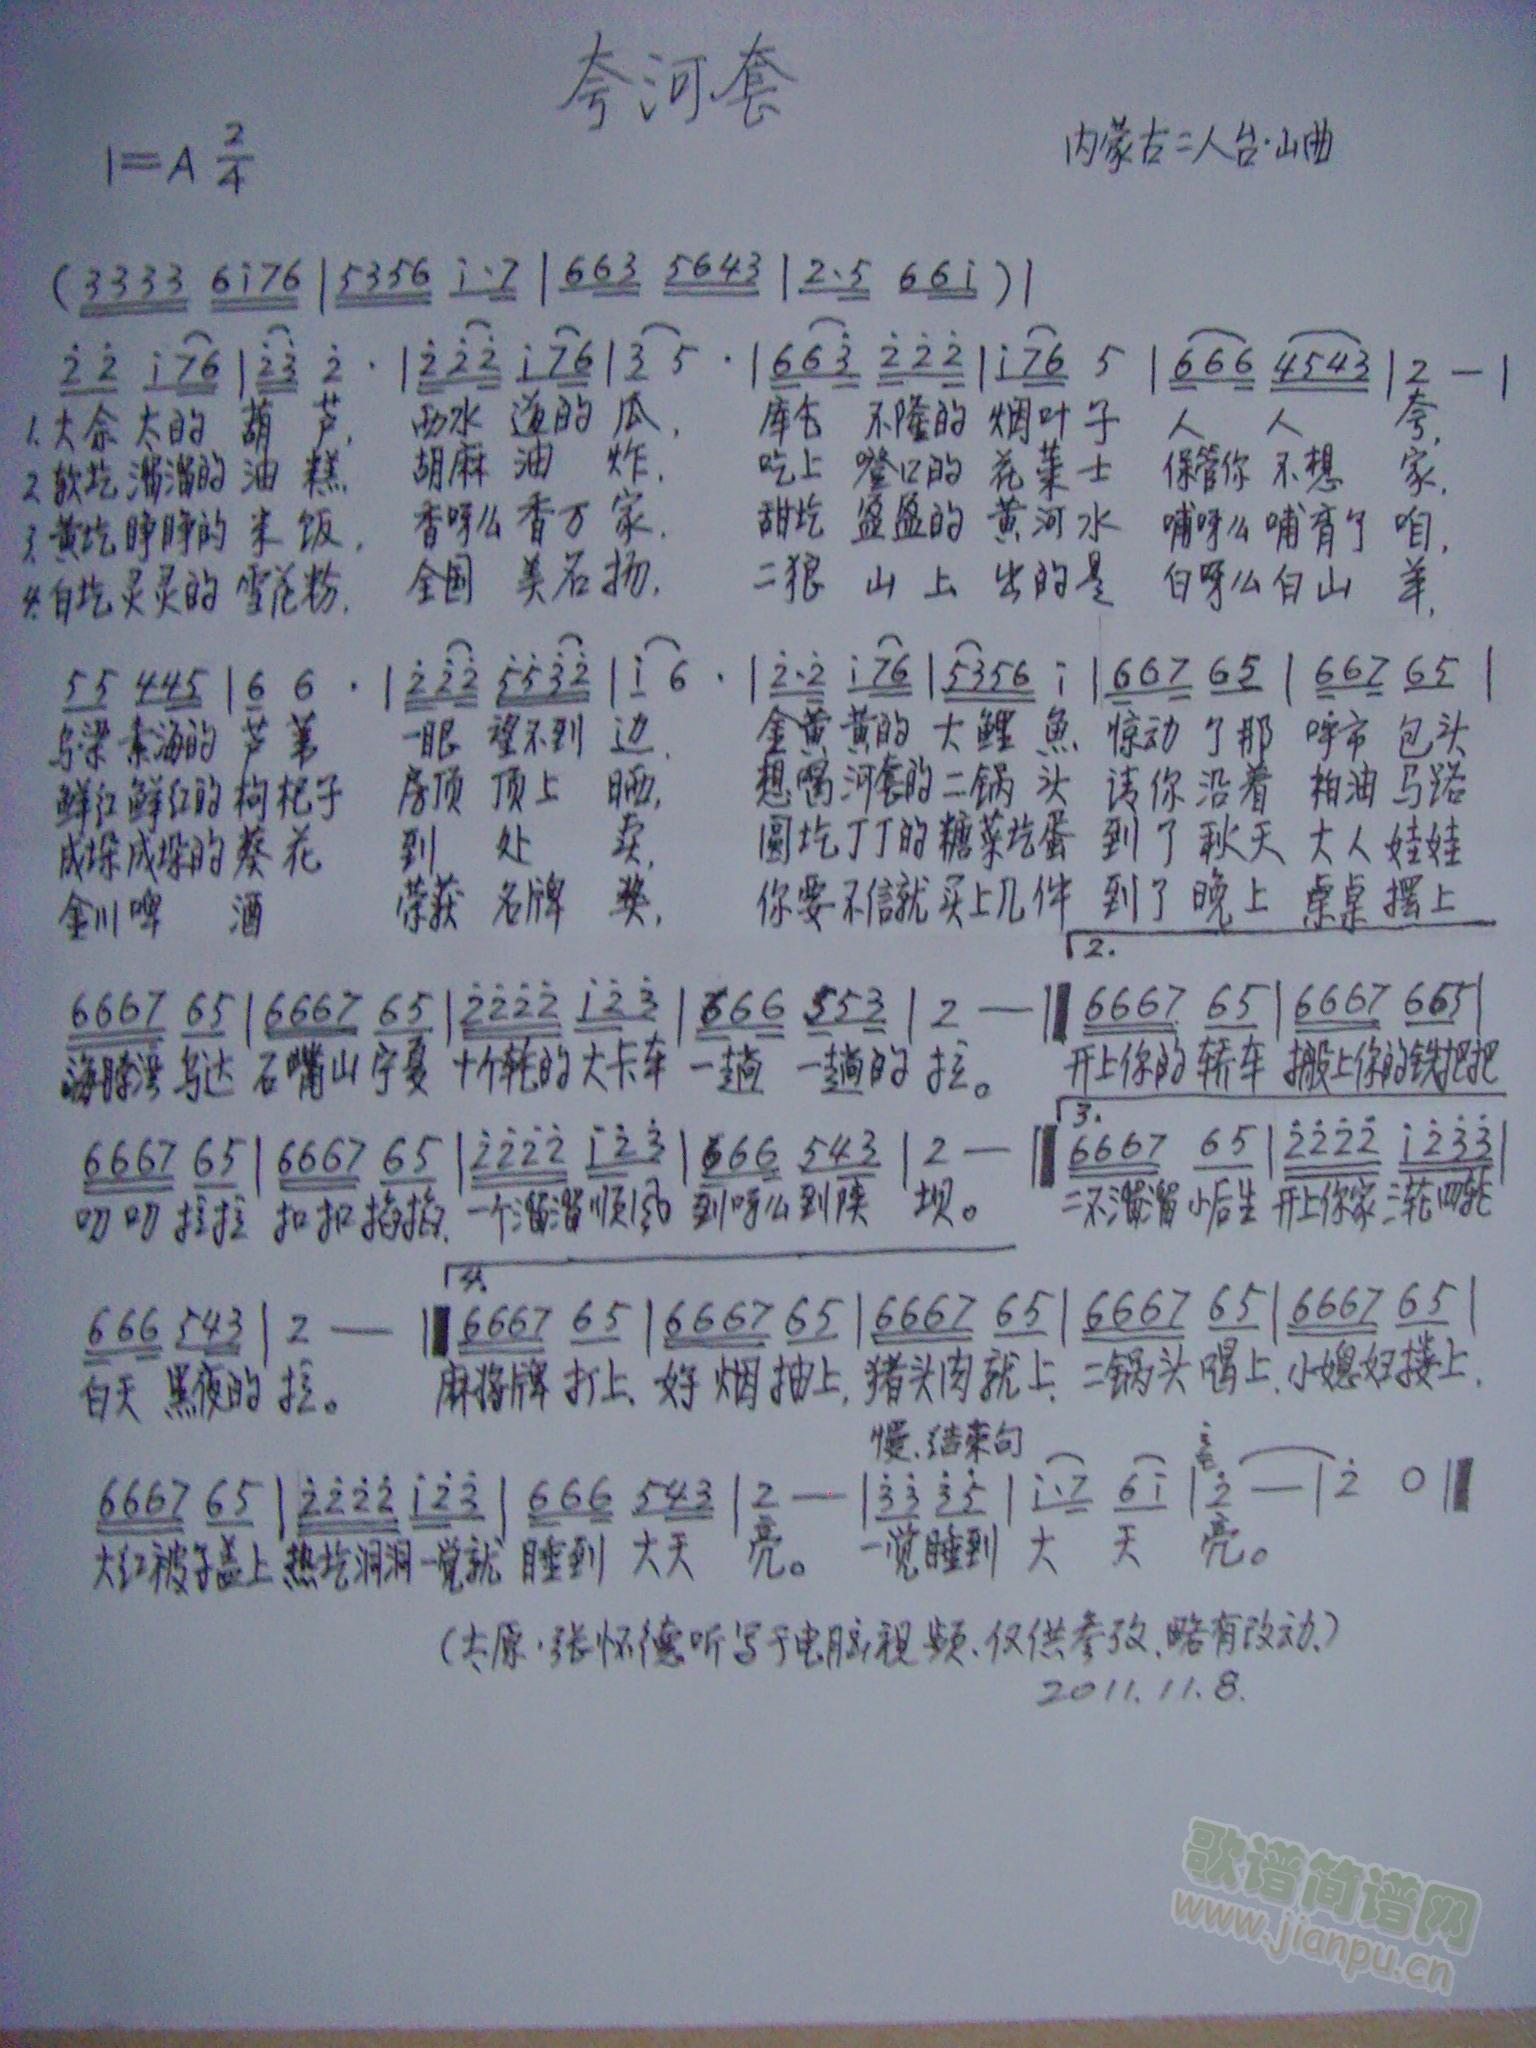 夸河套
1=A 2/4
内蒙古二人台·山曲
(3333 6i76 | 5356 i·7 | 663 5643 | 2·5 66i ) |
2̇2̇ i76 | 2̇3̇ 2̇· | 2̇2̇2̇ i76 | 3 5· | 663̇ 2̇2̇2̇ | i76 5 | 666 4543 | 2 — |
1.大佘太的葫芦, 西水道的瓜, 库仑不隆的烟叶子人人夸,
2.软圪溜溜的油糕 胡麻油炸, 吃上噔口的花莱士 保管你不想家,
3.黄圪睁睁的米饭, 香呀么香万家, 甜圪盈盈的黄河水 哺呀么哺育了咱,
4.白圪灵灵的雪花粉, 全国美名扬, 二狼山上出的是 白呀么白山羊,
55 445 | 6 6· | 2̇2̇2̇ 5̇5̇3̇2̇ | i 6· | 2̇·2̇ i76 | 5356 i | 667 65 | 667 65 |
乌梁素海的芦苇 一眼望不到边, 金黄黄的大鲤魚 惊动了那 呼市包头
鲜红鲜红的枸杞子 房顶顶上晒, 想喝河套的二锅头 请你沿着 柏油马路
成垛成垛的葵花 到处卖, 圆圪丁丁的糖菜圪蛋 到了秋天 大人娃娃
金川啤酒 荣获名牌奖, 你要不信就买上几件 到了晚上 桌桌摆上
2.
6667 65 | 6667 65 | 2̇2̇2̇2̇ i2̇3̇ | 666 553 | 2 — ‖ 6667 65 | 6667 665 |
海勃湾乌达 石嘴山宁夏 十个轮的大卡车 一趟一趟的拉。 开上你的轿车 搬上你的铁把把
3.
6667 65 | 6667 65 | 2̇2̇2̇2̇ i2̇3̇ | 666 543 | 2 — ‖ 6667 65 | 2̇2̇2̇2̇ i2̇3̇3̇ |
叨叨拉拉 扣扣掐掐, 一个溜溜顺风 到呀么到陕坝。 二不溜溜小后生 开上你家三轮四轮
4.
666 543 | 2 — ‖ 6667 65 | 6667 65 | 6667 65 | 6667 65 | 6667 65 |
白天黑夜的拉。 麻将牌打上, 好烟抽上, 猪头肉就上, 二锅头喝上, 小媳妇搂上,
慢、结束句
6667 65 | 2̇2̇2̇2̇ i2̇3̇ | 666 543 | 2 — | 3̇3̇ 3̇5̇ | i·7 6i | 2̇ — | 2̇ 0 ‖
大红被子盖上 热圪洞洞一觉就 睡到大天亮。 一觉睡到大天亮。
(太原·张怀德听写于电脑视频、仅供参攷、略有改动)
2011.11.8.
歌谱简谱网
www.jianpu.cn